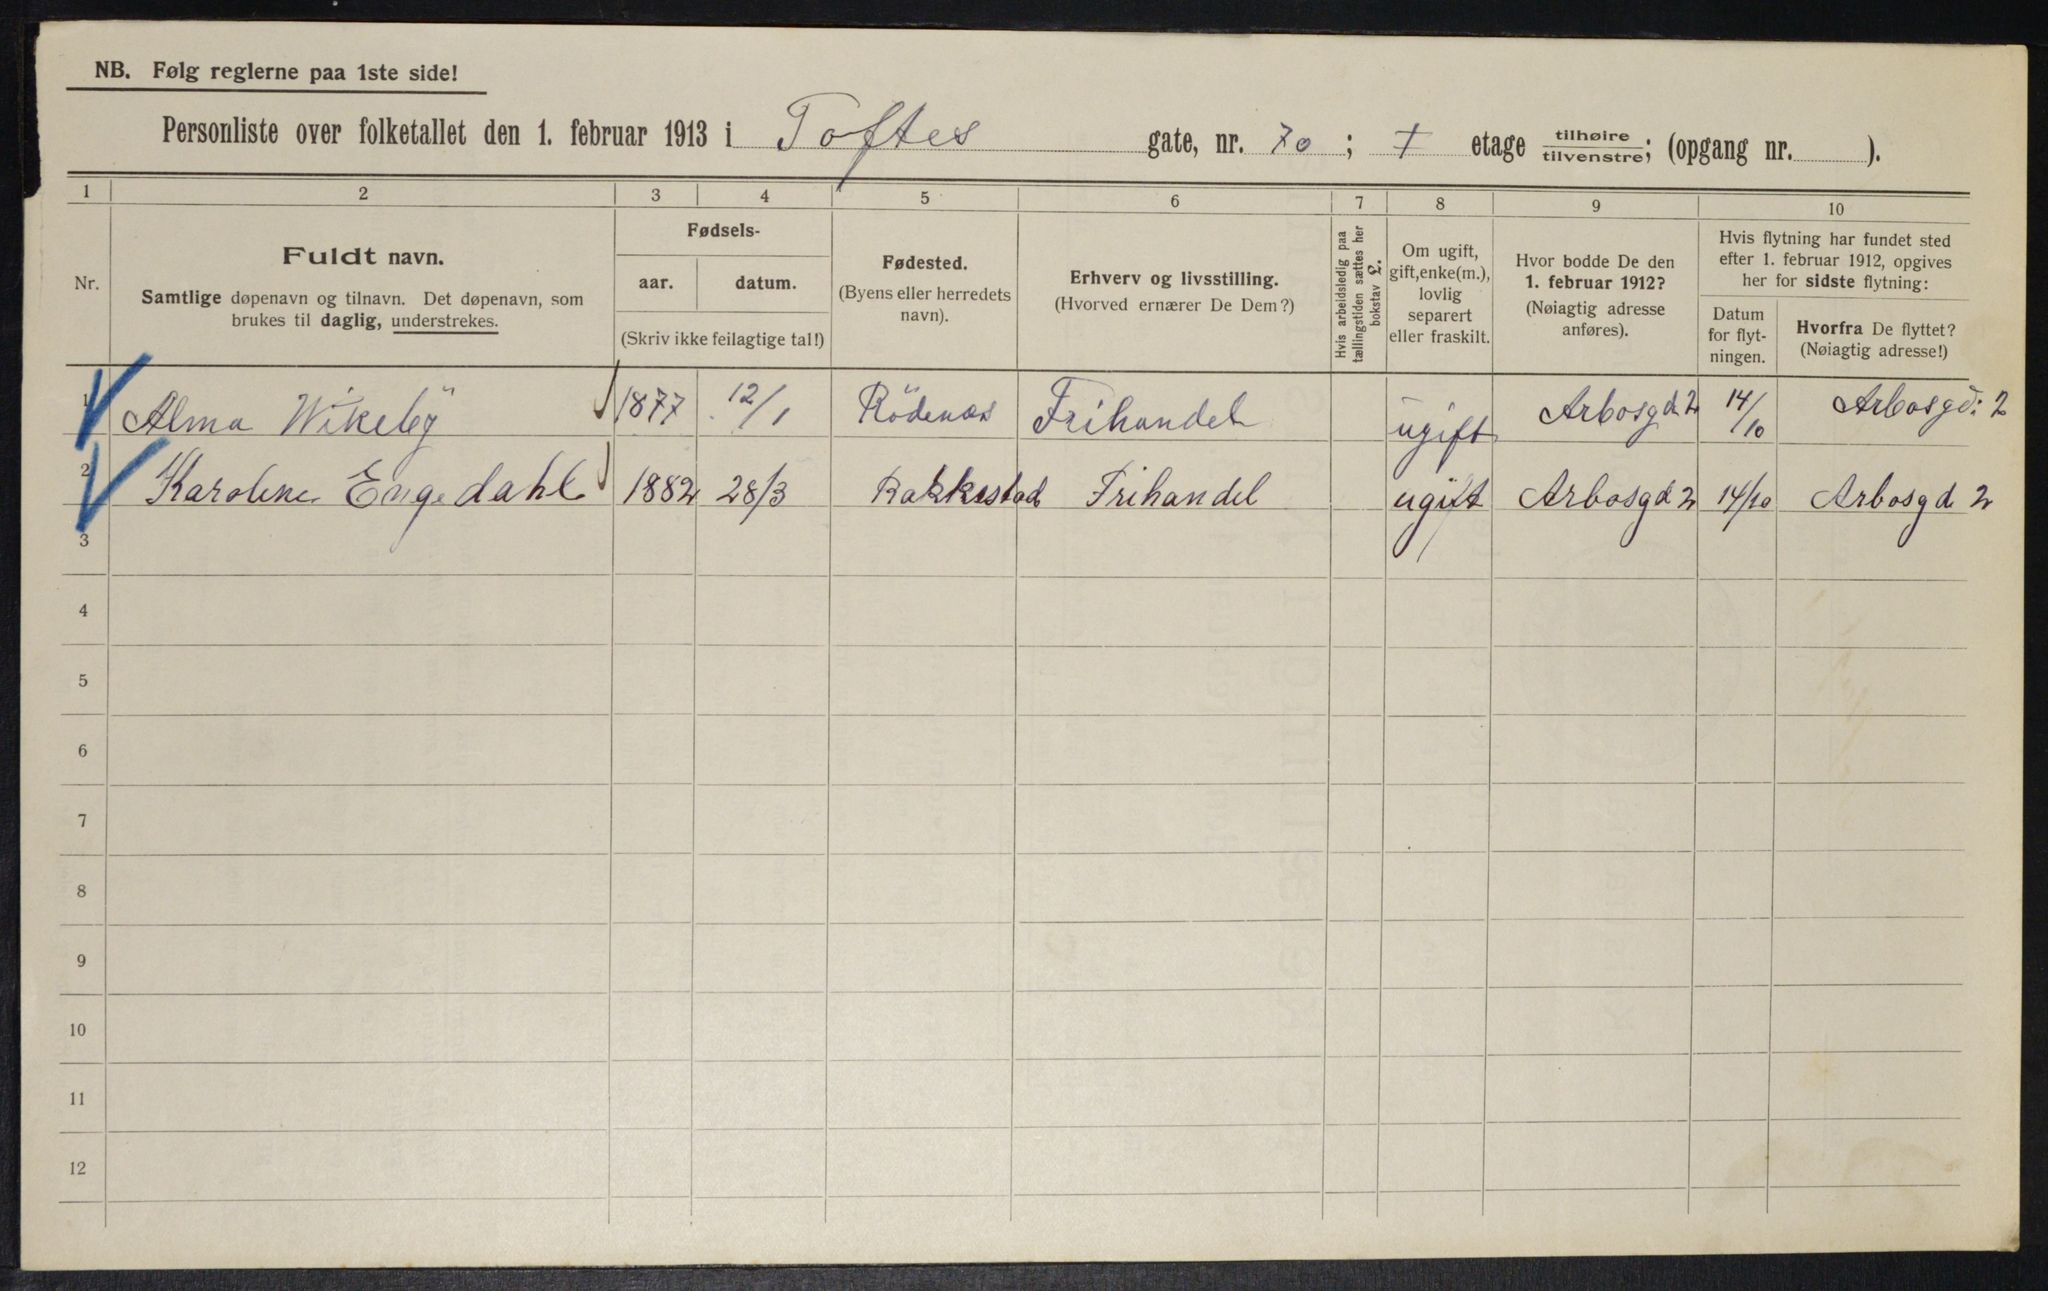 NB. Følg reglerne paa 1ste side!
Personliste over folketallet den 1. februar 1913 i Toftes gate, nr. 70; I etage tilhøire/tilvenstre; (opgang nr. ).
1 2 3 4 5 6 7 8 9 10
Nr.
Fuldt navn.
Samtlige døpenavn og tilnavn. Det døpenavn, som
brukes til daglig, understrekes.
Fødsels-
aar. datum.
(Skriv ikke feilagtige tal!)
Fødested.
(Byens eller herredets
navn).
Erhverv og livsstilling.
(Hvorved ernærer De Dem?)
Hvis arbeidsledig paa
tællingstiden sættes her
bokstav L.
Om ugift,
gift, enke(m.),
lovlig
separert
eller fraskilt.
Hvor bodde De den
1. februar 1912?
(Nøiagtig adresse
anføres).
Hvis flytning har fundet sted
efter 1. februar 1912, opgives
her for sidste flytning:
Datum
for flyt-
ningen.
Hvorfra De flyttet?
(Nøiagtig adresse!)
1 Alma Wikeby 1877 12/1 Rödenæs Frihandel ugift Arbosgd 2 14/10 Arbosgd: 2
2 Karoline Engedahl 1882 28/3 Rakkestad Frihandel ugift Arbosgd 2 14/10 Arbosgd 2
3
4
5
6
7
8
9
10
11
12